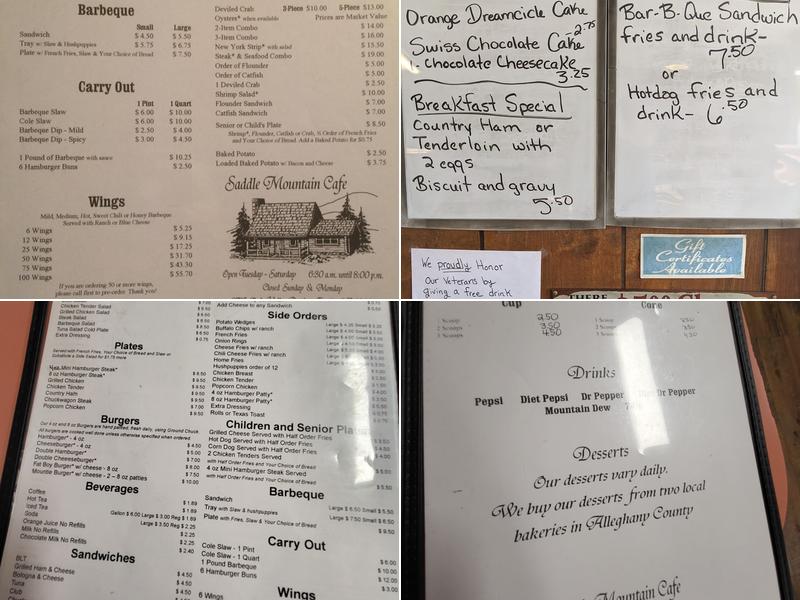 Barbeque
Small Large
Sandwich $ 4.50 $ 5.50
Tray w/ Slaw & Hushpuppies $ 5.75 $ 6.75
Plate w/ French Fries, Slaw & Your Choice of Bread $ 7.50
Carry Out
1 Pint 1 Quart
Barbeque Slaw $ 6.00 $ 10.00
Cole Slaw $ 6.00 $ 10.00
Barbeque Dip - Mild $ 2.50 $ 4.00
Barbeque Dip - Spicy $ 3.00 $ 4.50
1 Pound of Barbeque with sauce $ 10.25
6 Hamburger Buns $ 2.50
Wings
Mild, Medium, Hot, Sweet Chili or Honey Barbeque
Served with Ranch or Blue Cheese
6 Wings $ 5.25
12 Wings $ 9.15
25 Wings $ 17.25
50 Wings $ 31.70
75 Wings $ 43.30
100 Wings $ 55.70
If you are ordering 50 or more wings,
please call first to pre-order. Thank you!
Deviled Crab 3-Piece $10.00 5-Piece $13.00
Oysters* when available Prices are Market Value
2-Item Combo $ 14.00
3-Item Combo $ 16.00
New York Strip* with salad $ 15.50
Steak* & Seafood Combo $ 19.00
Order of Flounder $ 5.00
Order of Catfish $ 5.00
1 Deviled Crab $ 2.50
Shrimp Salad* $ 10.00
Flounder Sandwich $ 7.00
Catfish Sandwich $ 7.00
Senior or Child's Plate $ 8.50
Shrimp*, Flounder, Catfish or Crab, ½ Order of French Fries
and Your Choice of Bread. Add a Baked Potato for $0.75
Baked Potato $ 2.50
Loaded Baked Potato w/ Bacon and Cheese $ 3.75
Saddle Mountain Cafe
Open Tuesday - Saturday 6:30 a.m. until 8:00 p.m.
Closed Sunday & Monday
Orange Dreamcicle Cake
-2.75
Swiss Chocolate Cake
Chocolate Cheesecake
3.25
Breakfast Special
Country Ham or
Tenderloin with
2 eggs
Biscuit and gravy
5.50
Bar-B-Que Sandwich
fries and drink-
7.50
or
Hotdog fries and
drink- 6.50
Gift
Certificates
Available
We proudly Honor
Our Veterans by
giving a free drink
Chicken Tender Salad
Grilled Chicken Salad
Steak Salad
Barbeque Salad
Tuna Salad Cold Plate
Extra Dressing
Plates
Served with French Fries, Your Choice of Bread and Slaw or
Substitute a Side Salad for $1.75 more
Mini Hamburger Steak*
8 oz Hamburger Steak*
Grilled Chicken
Chicken Tender
Country Ham
Chuckwagon Steak
Popcorn Chicken
Burgers
Our 4 oz and 8 oz Burgers are hand patted, fresh daily, using Ground Chuck
All burgers are cooked well done unless otherwise specified when ordered.
Hamburger* - 4 oz $ 4.50
Cheeseburger* - 4 oz $ 5.00
Double Hamburger* $ 7.00
Double Cheeseburger* $ 7.50
Fat Boy Burger* w/ cheese - 8 oz $ 8.00
Mountie Burger* w/ cheese - 2 – 8 oz patties $ 10.00
Beverages
Coffee $ 1.89
Hot Tea $ 1.89
Iced Tea Gallon $ 6.00 Large $ 3.00 Reg $ 1.89
Soda Large $ 3.50 Reg $ 2.25
Orange Juice No Refills $ 2.25
Milk No Refills $ 2.25
Chocolate Milk No Refills $ 2.40
Sandwiches
BLT $ 4.50
Grilled Ham & Cheese $ 4.50
Bologna & Cheese $ 4.50
Tuna
Club
Add Cheese to any Sandwich
Side Orders
Potato Wedges
Buffalo Chips w/ ranch
French Fries
Onion Rings
Cheese Fries w/ ranch
Chili Cheese Fries w/ ranch
Home Fries
Hushpuppies order of 12
Chicken Breast
Chicken Tender
Popcorn Chicken
4 oz Hamburger Patty*
8 oz Hamburger Patty*
Extra Dressing
Rolls or Texas Toast
Children and Senior
Grilled Cheese Served with Half Order Fries
Hot Dog Served with Half Order Fries
Corn Dog Served with Half Order Fries
2 Chicken Tenders Served
with Half Order Fries and Your Choice of Bread
4 oz Mini Hamburger Steak Served
with Half Order Fries and Your Choice of Bread $ 5.50
Barbeque
Sandwich Large $ 6.50 Small $ 5.50
Tray with Slaw & hushpuppies Large $ 7.50 Small $ 6.50
Plate with Fries, Slaw & Your Choice of Bread $ 9.50
Carry Out
Cole Slaw - 1 Pint $ 6.00
Cole Slaw - 1 Quart $ 10.00
1 Pound Barbeque $ 12.00
6 Hamburger Buns $ 3.00
Wings
6 Wings
Cup Cone
1 Scoop 2.50 1 Scoop
2 Scoops 3.50 2 Scoops
3 Scoops 4.50 3 Scoops
Drinks
Pepsi Diet Pepsi Dr Pepper Dr Pepper
Mountain Dew
Desserts
Our desserts vary daily.
We buy our desserts from two local
bakeries in Alleghany County
Mountain Cafe